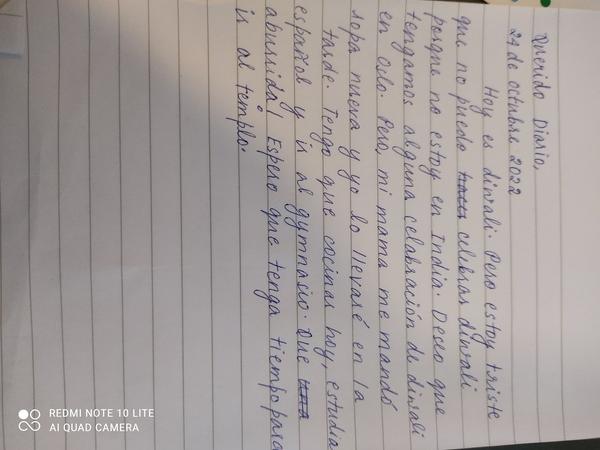 Querido Diario,
24 de octubre 2022
Hoy es diwali. Pero estoy triste
que no puedo celebrar diwali
porque no estoy en India. Deseo que
tengamos alguna celabración de diwali
en Oslo. Pero, mi mama me mandó
ropa nueva y yo lo llevaré en la
tarde. Tengo que cocinar hoy, estudia
español y ir al gymnasio. Que
aburrida! Espero que tenga tiempo para
ir al templo.
REDMI NOTE 10 LITE
AI QUAD CAMERA